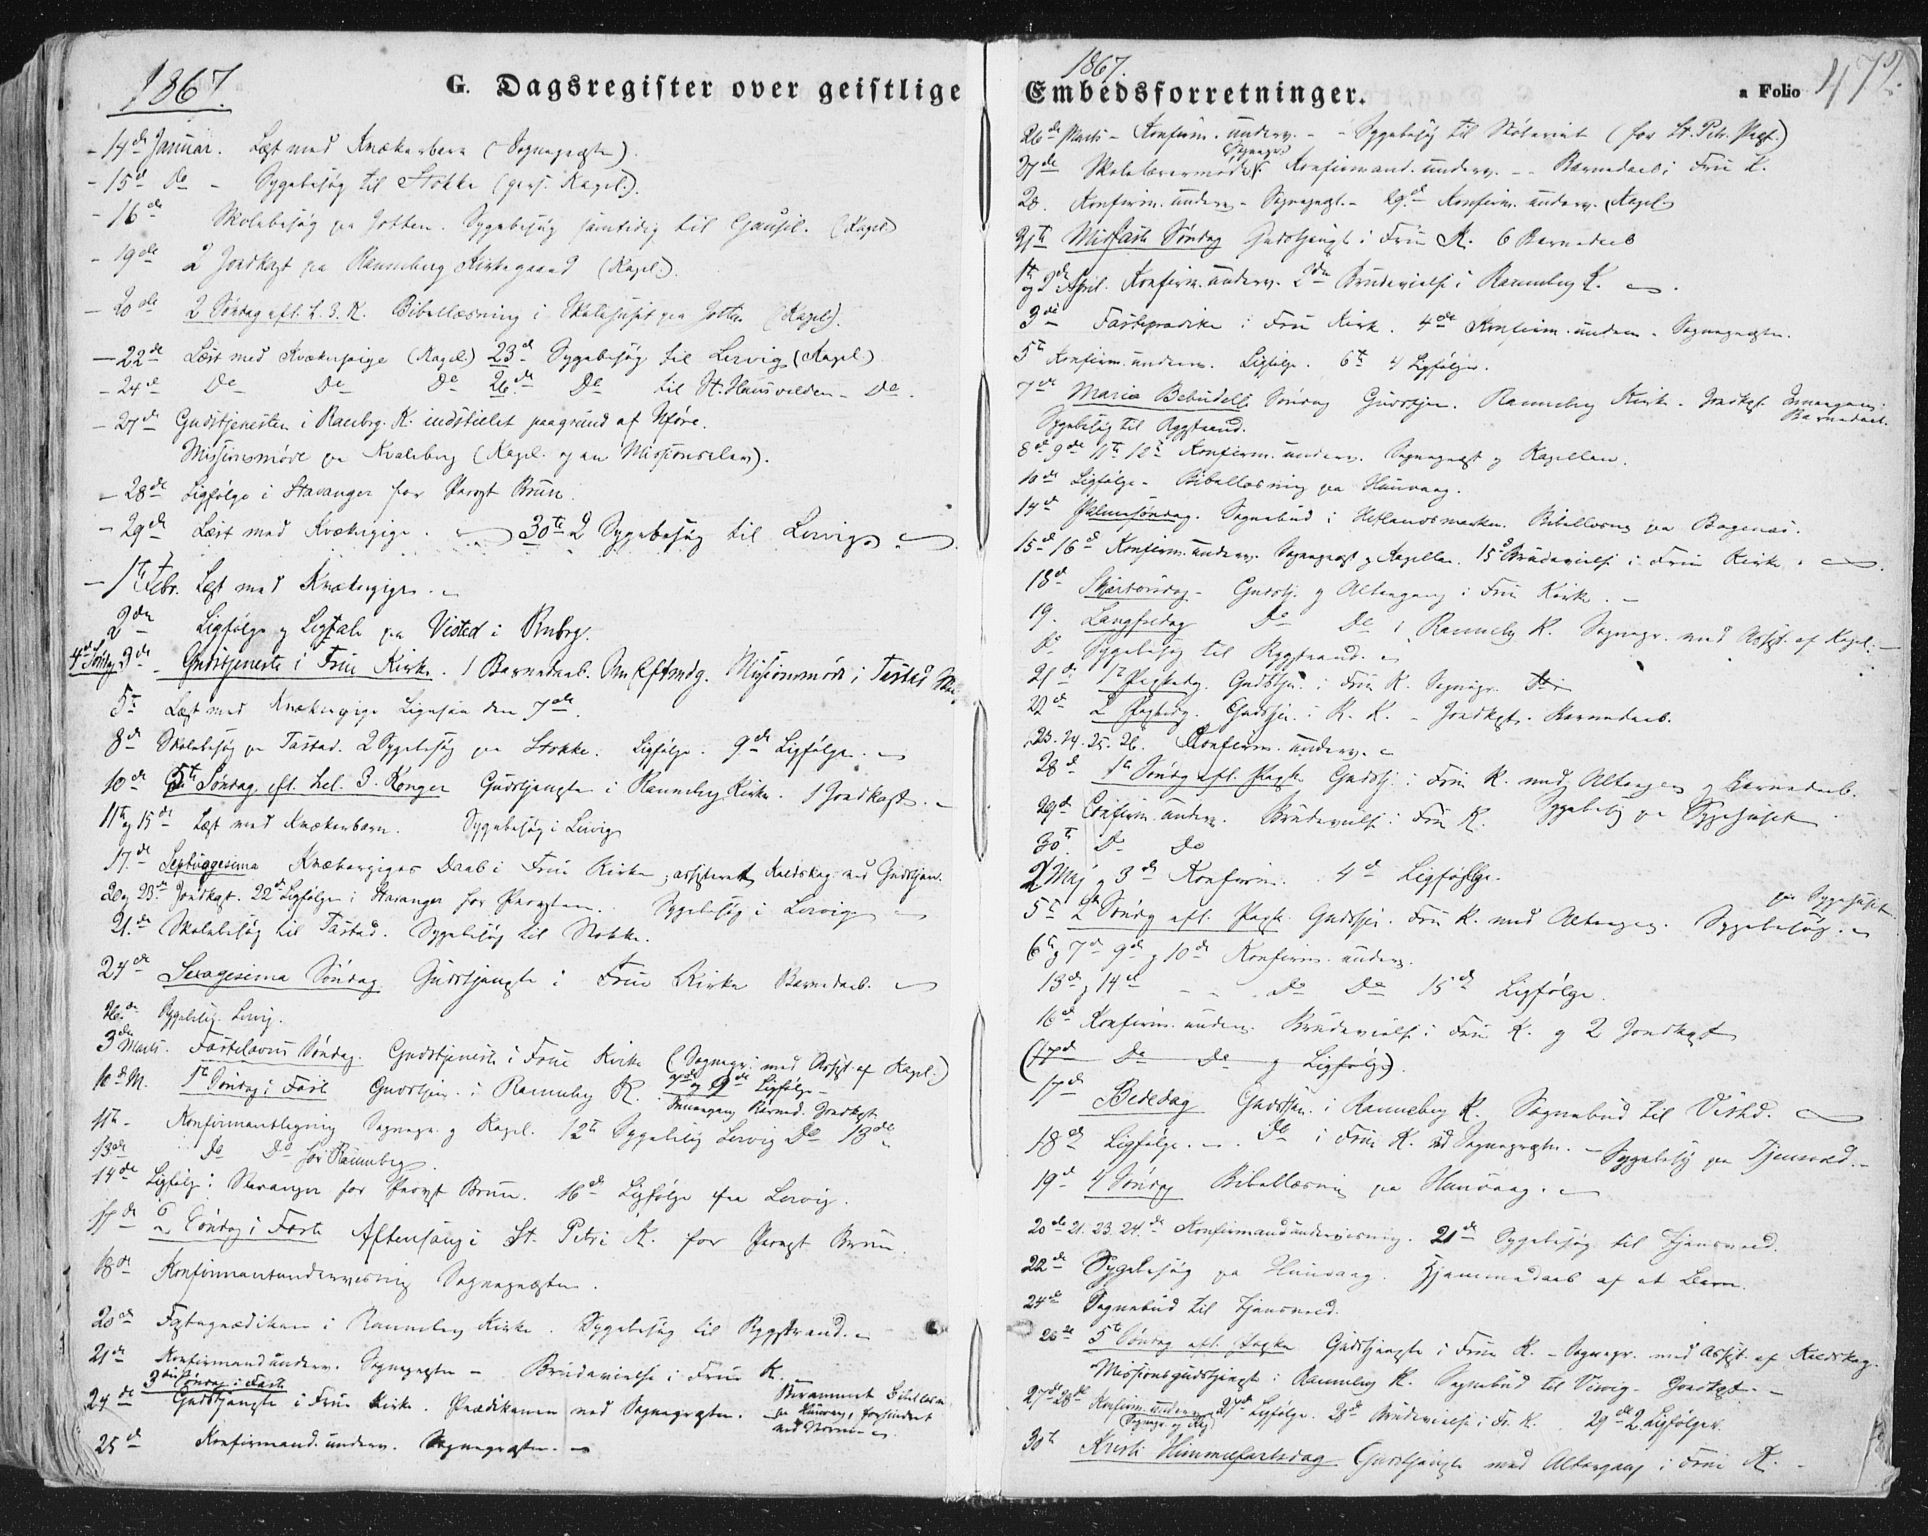 1867.
G. Dagsregister over geistlige
- 14de Januar. Læst med Kvækerbarn (Sognepræsten).
- 15de Do - Sygebesøg til Stokke (pers. Kapel.).
- 16de Skolebesøg paa Jotten. Sygebesøg samtidig til Gausel. (Kapel.)
- 19de 2 Jordkast paa Ranneberg Kirkegaard (Kapel.)
- 20de 2 Søndag eft. h. 3. K. Bibellæsning i Skolehuset paa Jotten (Kapel.).
- 22de Læst med Kvækerpige (Kapel.) 23de Sygebesøg til Lervig (Kapel.)
- 24de Do Do Do 26de Do til St. Hansvolden - Do.
- 27de Gudstjenesten i Ranbrg. K. indstillet paagrund af Uføre.
Missionsmøde paa Kvaleberg (Kapel. og en Missionselev).
- 28de Ligfølge i Stavanger for Provst Brun.
- 29de Læst med Kvækerpige. 30te 2 Sygebesøg til Lervig.
- 1ste Febr. Læst med Kvækerpige.
2den Ligfølge og Ligtale paa Visted i Rnbrg.
4de Søndag 3de Gudstjeneste i Frue Kirke. 1 Barnedaab. Om Eftmdg. Missionsmøde i Tastad
5te Læst med Kvækerpige Ligesaa den 7de.
8de Skolebesøg paa Tastad. 2 Sygebesøg paa Stokke. Ligfølge. 9de Ligfølge.
10de 5te Søndag eft. hel. 3. Konger Gudstjeneste i Ranneberg Kirke. 1 Jordkast.
11te og 15de Læst med Kvækerbarn. Sygebesøg i Lervig
17de Septuagesima Kvækerpiges Daab i Frue Kirke, assisteret Kaldskap. ved Gudstjen.
20 og 23de Jordkast. 22de Ligfølge i Stavanger for Provsten. Sygebesøg i Lervig
21de Skolebesøg til Tastad. Sygebesøg til Stokke.
24de Sexagesima Søndag Gudstjeneste i Frue Kirke Barnedaab.
26de Sygebesøg Lervig.
3die Marts. Fastelavns Søndag. Gudstjeneste i Frue Kirke (Sognepr. med Assist. af Kapel.)
10de M. 1ste Søndag i Faste Gudstjen. i Ranneberg K. 7de og 9de Ligfølge -
Introngang Barned. Jordkast
11te. Konfirmantlegning Sognepr. og Kapel. 12te Sygebesøg Lervig Do 13de
13de Do Do for Ranneberg.
14de Ligfølge i Stavanger for Provst Brun. 16de Ligfølge fra Lervig.
17de Søndag i Faste Aftensang i St. Petri K. for Provst Brun.
18de Konfirmantundervisning Sognepræsten.
20de Fasteprædiken i Ranneberg Kirke. Sygebesøg til Rygstrand.
21de Konfirmand underv. Sognepræsten - Brudevielse i Frue K.
3die Søndag i Faste
24de Gudstjeneste i Frue Kirke. Prædikenen ved Sognepræsten. Berammet Bibellæsn.
paa Hinvaag, forhindret
ved Storm
25de Konfirmand. underv. Sognepræsten.
1867.
Embedsforretninger.
a Folio 472.
26de Marts - Konfirm. underv. - Sygebesøg til (for St. Petr. Præst.)
27de Skolelærermøde Sognepr. Konfirmand. underv. - Barnedaab i Frue K.
28. Konfirm. underv. - Sognepræst. - 29de Konfirm. underv. (Kapel.)
31te Midfaste Søndag Gudstjenst. i Frue K. 6 Barnedaab
1ste og 2den April. Konfirm. underv. 2den Brudevielse i Ranneberg K.
3die Fasteprædike i Frue Kirk. 4de Konfirm. underv. Sognepræsten.
5te Konfirm. underv. Ligfølge. 6te 4 Ligfølger.
7de Mariæ Bebudelse Søndag Gudstjen. Ranneberg Kirke. Jordkast.
Barnedaab.
Sygebesøg til Rygstrand.
8de 9de 11te 12te Konfirm. underv. Sognepræst og Kapellan.
10de Ligfølge - Bibellæsning paa Hinvaag.
14de Palmesøndag. Sognebud i Hetlandsmarken. Bibellæsn. paa
15de 16de Konfirm. underv. Sognepræst og Kapellan. 15de Brudevielse i Frue Kirke.
18de Skjærtorsdag - Gudstj. og Altergang i Frue Kirke.
19. Langfredag Do Do i Ranneberg K. Sognepr. med Assist. af Kapel. -
Do Sygebesøg til Rygstrand.
21de 1ste Paaskedg. Gudstjen. i Frue K. Sognepr.
22de 2 Paaskedg. Gudstjen. i R. K. - Jordkast. Barnedaab.
23. 24. 25. 26. Konfirm. underv.
28de 1ste Søndg eft. Paaske Gudstj. i Frue K. med Altergang og Barnedaab.
29de Confirm. underv. Brudevielse i Frue K. Sygebesøg paa Sygehuset
30te Do Do
2 Maj og 3de Konfirm. 4de Ligfølge.
5te 2den Søndg eft. Paask. Gudstjen. Frue K. med Altergang. Sygebesøg. paa Sygehuset
6te og 7de 9de og 10de Konfirm. underv.
13de og 14de - - Do Do 15de Ligfølge.
16de Konfirm. underv. Brudevielse i Frue K. og 2 Jordkast
(17de Do Do og Ligfølge).
17de Bededag Gudstjen. i Ranneberg K. Sognebud til Visted.
18de Ligfølge. Do i Frue K. ved Sognepræsten. - Sygebesøg paa Tjensvold. -
19de 4 Søndag Bibellæsning paa Hinvaag.
20de 21. 23. 24de Konfirmandundervisning. 21de Sygebesøg til Tjensvold.
22de Sygebesøg paa Hinvaag. Hjemmedaab af et Barn.
24de Sognebud til Tjensvold.
26de 5te Søndag eft. Paaske Gudstjeneste i Frue K. - Sognepr. med Assist. af Kaldskap.
Missionsgudstjenest i Ranneberg K. Sognebud til - Jordkast. -
27de 28de Konfirm. underv. 27de Ligfølge. 28de Brudevielse i Fr. K. 29de 2 Ligfølger.
Sognepr. og Kap.
30te Kristi Himmelfartsdag Gudstjeneste med Altergang i Frue K. -